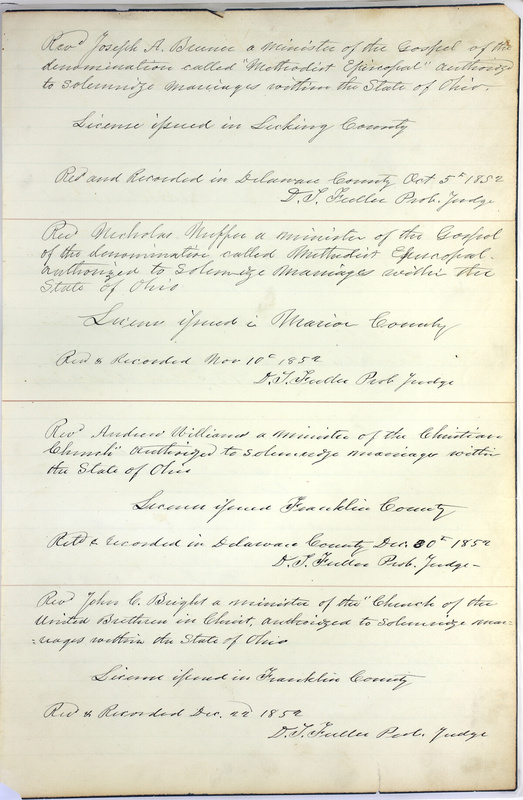 Revd Joseph A. Bruner a minister of the Gospel of the
denomination called "Methodist Episcopal" authorized
to solemnize marriages within the State of Ohio.
License issued in Licking County
Recd and Recorded in Delaware County Oct 5th 1852
D. T. Fuller Prob. Judge
Revd Nicholas Nuffer a minister of the Gospel
of the denomination called Methodist Episcopal.
authorized to solemnize marriages within the
State of Ohio
License issued in Marion County
Recd & Recorded Nov 10th 1852
D. T. Fuller Prob Judge
Revd Andrew Williams a minister of the Christian
Church" authorized to solemnize marriages within
the State of Ohio
License issued Franklin County
Recd & recorded in Delaware County Dec. 30th 1852
D. T. Fuller Prob. Judge
Revd John C. Bright a minister of the "Church of the
United Brethren in Christ, authorized to solemnize mar=
=riages within the State of Ohio
License issued in Franklin County
Recd & Recorded Dec. 22 1852
D. T. Fuller Prob. Judge